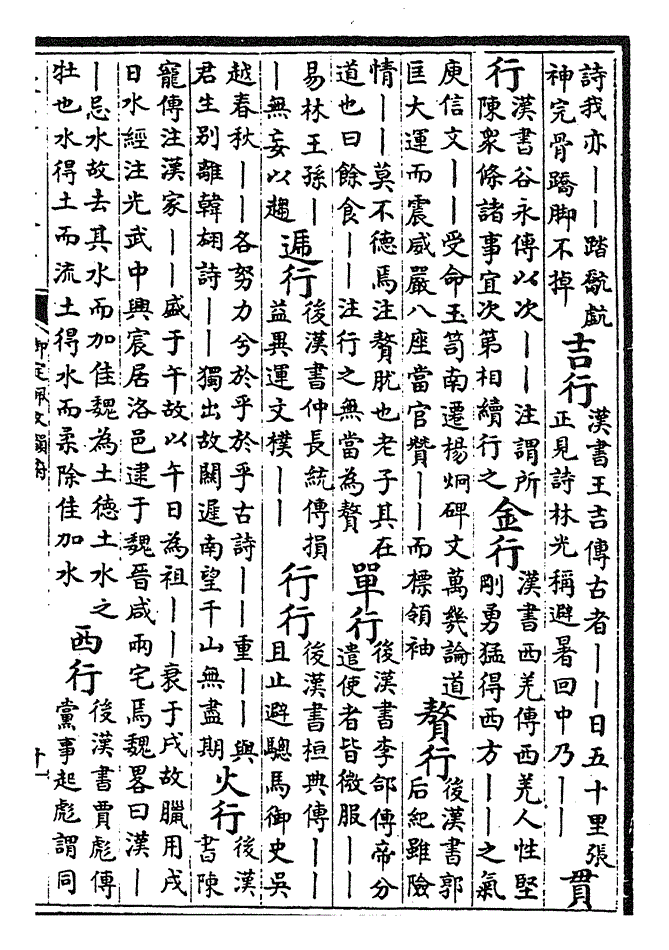 詩我亦――踏
神完骨蹻脚不掉
吉行
漢書王吉傳古者――日五十里張
正見詩林光稱避暑回中乃――
貫
行
漢書谷永傳以次――注謂所
陳衆條諸事宜次第相續行之
金行
漢書西羌傳西羌人性堅
剛勇猛得西方――之氣
庾信文――受命玉笥南遷楊炯碑文萬幾論道
巨大運而震威嚴八座當官贊――而標領袖
贅行
後漢書郭
后紀雖險
情――莫不德焉注贅肬也老子其在
道也曰餘食――注行之無當為贅
單行
後漢書李郃傳帝分
遣使者皆微服――
易林王孫―
―無妄以趨
遞行
後漢書仲長統傳損
益異運文樸――
行行
後漢書桓典傳――
且止避驄馬御史吳
越春秋――各努力兮於乎於乎古詩――重――與
君生別離韓翃詩――獨出故關遲南望千山無盡期
火行
後漢
書陳
寵傳注漢家――盛于午故以午日為祖――衰于戌故臘用戌
日水經注光武中興宸居洛邑逮于魏晉咸兩宅焉魏畧曰漢―
―忌水故去其水而加佳魏為土德土水之
牡也水得土而流土得水而柔除佳加水
西行
後漢書賈彪傳
黨事起彪謂同
御定佩文韻府
十一